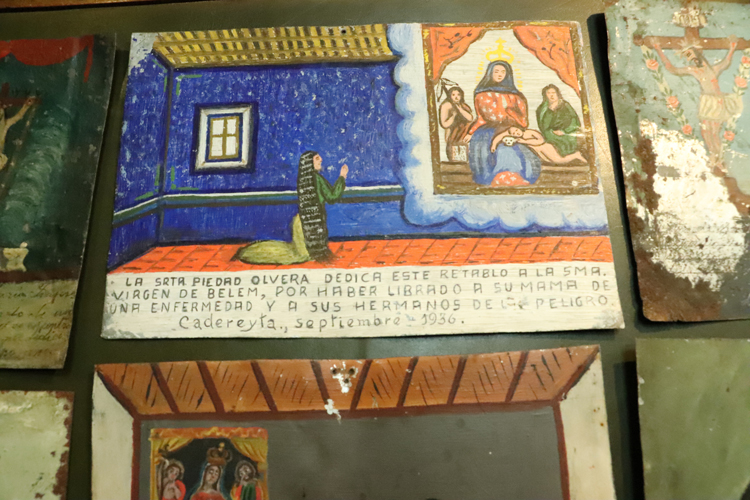 LA SRTA. PIEDAD OLVERA DEDICA ESTE RETABLO A LA SMA.
VIRGEN DE BELEM, POR HABER LIBRADO A SU MAMA DE
UNA ENFERMEDAD Y A SUS HERMANOS DE PELIGRO.
Cadereyta., septiembre 1936.